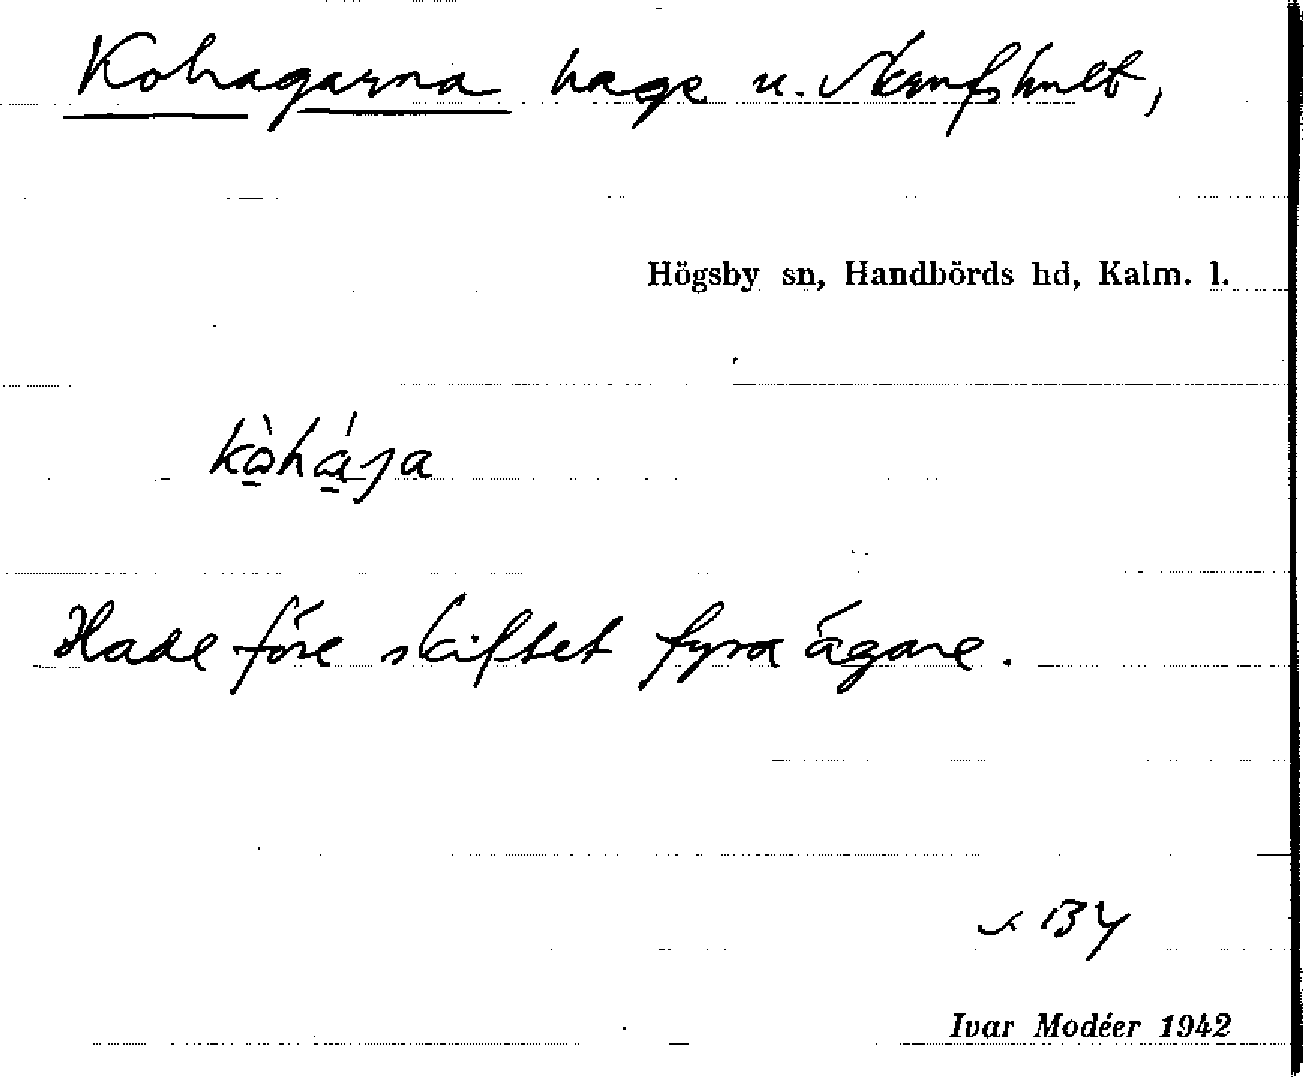 Kohagarna hage u. Skruvshult,
Högsby sn, Handbörds hd, Kalm. l.
kò̲há̲ja
Hade före skiftet fyra ägare.
BY
Ivar Modéer 1942